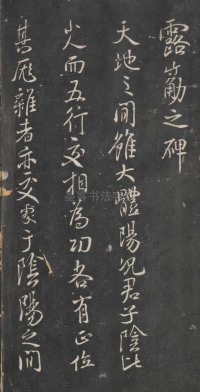 露筋之碑
天地之間雖大體陽況君子陰比
小人而五行交相為功各有正位
其厖雜者亦交錯于陰陽之間